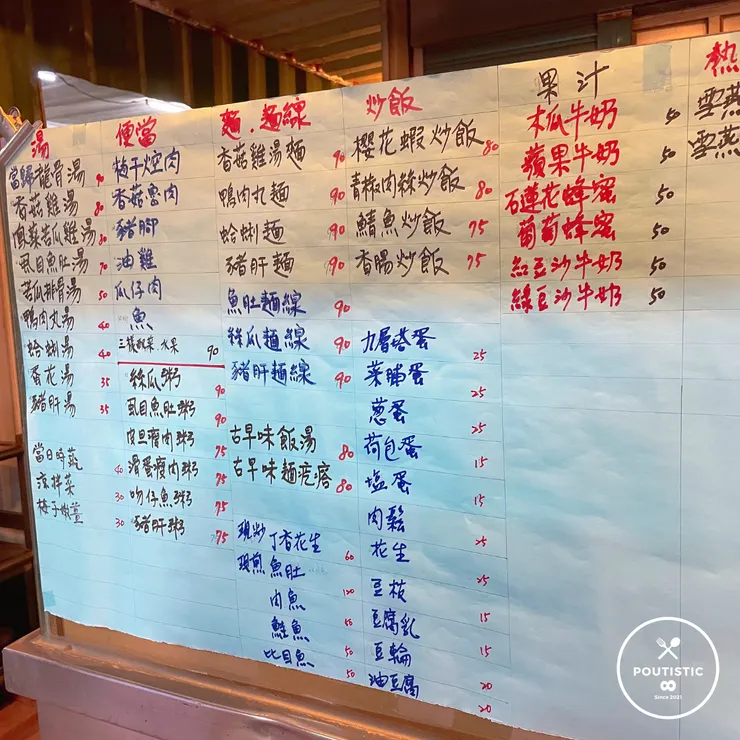 湯
當歸龍骨湯 90
香菇雞湯 80
鳳梨苦瓜雞湯 80
虱目魚肚湯 70
苦瓜排骨湯 50
鴨肉丸湯 40
蛤蜊湯 40
蛋花湯 35
豬肝湯 35
當日時蔬 40
涼拌菜 30
梅子嫩薑 30
便當
梅干焢肉
香菇魯肉
豬腳
油雞
瓜仔肉
魚
三樣配菜 水果 90
絲瓜粥 90
虱目魚肚粥 90
皮旦瘦肉粥 75
滑蛋瘦肉粥 75
吻仔魚粥 75
豬肝粥 75
麵．麵線
香菇雞湯麵 90
鴨肉丸麵 90
蛤蜊麵 90
豬肝麵 90
魚肚麵線 90
絲瓜麵線 90
豬肝麵線 90
古早味飯湯 80
古早味麵疙瘩 80
現炒丁香花生 60
現煎魚肚 120
肉魚 50
鮭魚 50
比目魚 50
炒飯
櫻花蝦炒飯 80
青椒肉絲炒飯 80
鯖魚炒飯 75
香腸炒飯 75
九層塔蛋 25
菜脯蛋 25
蔥蛋 25
荷包蛋 15
塩蛋 15
肉鬆 25
花生 25
豆枝 15
豆腐乳 15
豆輪 20
油豆腐 20
果汁
木瓜牛奶 50
蘋果牛奶 50
石蓮花蜂蜜 50
葡萄蜂蜜 50
紅豆沙牛奶 50
綠豆沙牛奶 50
熱
雪燕
雪燕
POUTISTIC
Since 2021